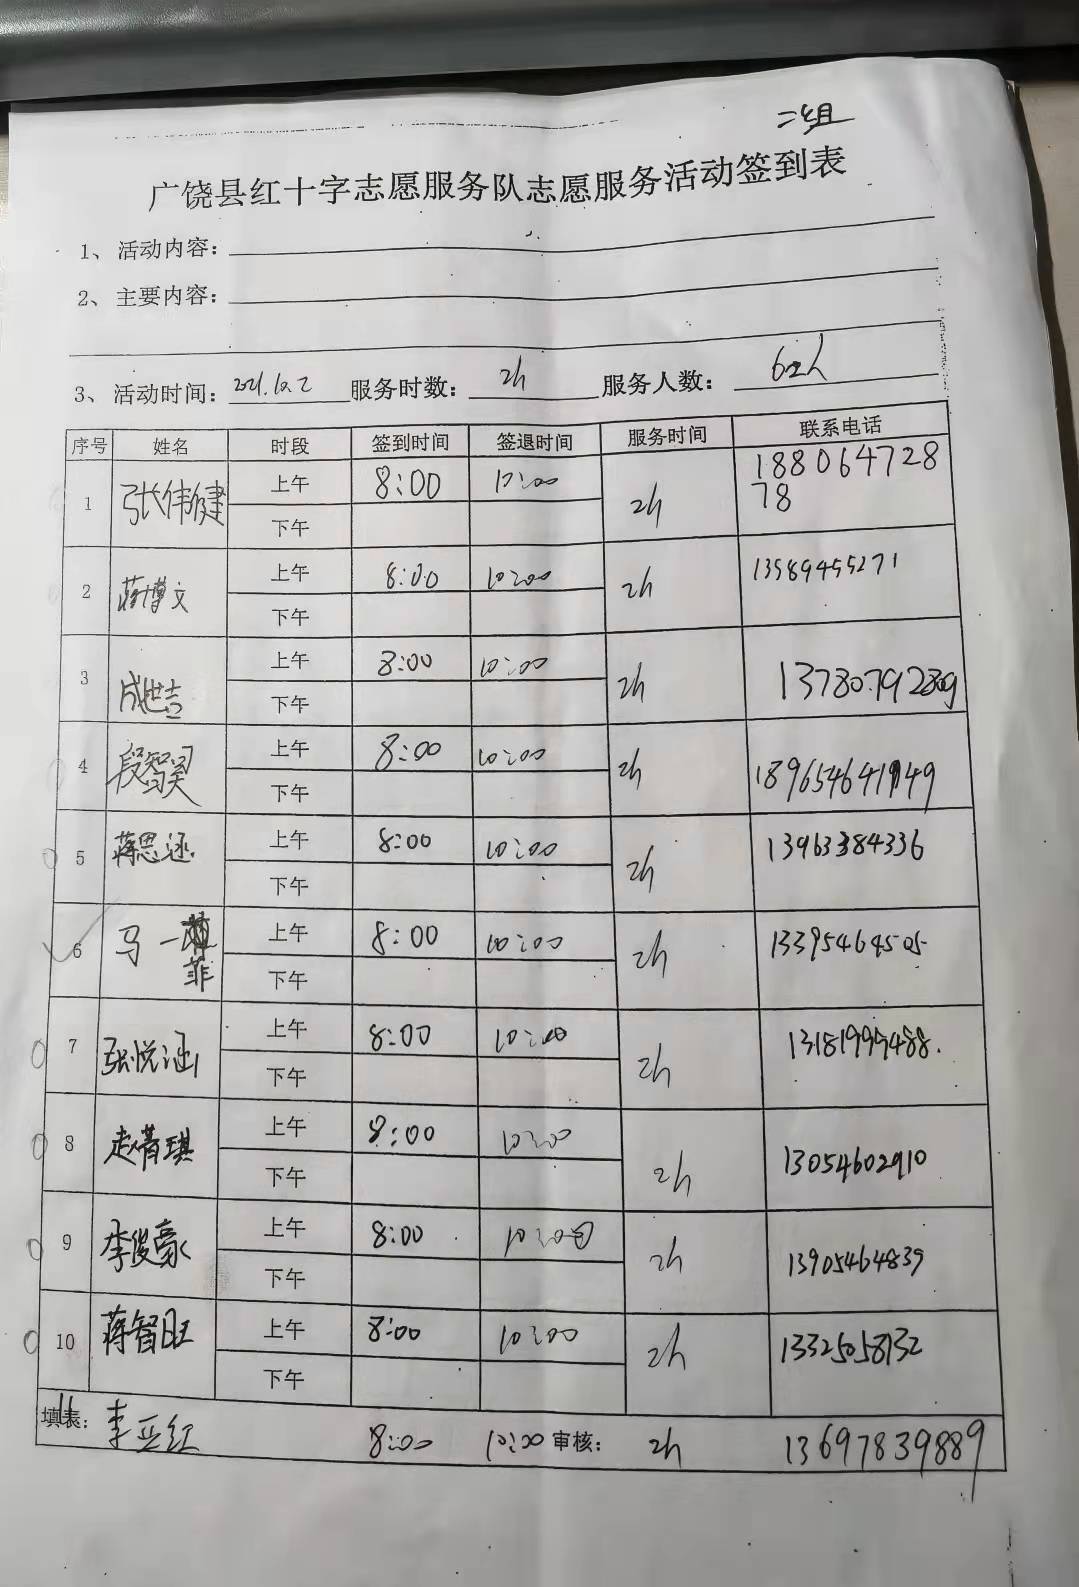 二组
广饶县红十字志愿服务队志愿服务活动签到表
1、活动内容：
2、主要内容：
3、活动时间：2021.10.2 服务时数：2h 服务人数：62人
序号 姓名 时段 签到时间 签退时间 服务时间 联系电话
1 张伟健 上午 8:00 10:00 2h 18806472878
下午
2 蒋博文 上午 8:00 10:00 2h 13589455271
下午
3 成世吉 上午 8:00 10:00 2h 13780792809
下午
4 段智昊 上午 8:00 10:00 2h
下午
5 蒋思涵 上午 8:00 10:00 2h 13963384336
下午
6 马一菲 上午 8:00 10:00 2h 13395464505
下午
7 张悦涵 上午 8:00 10:00 2h 13181995488.
下午
8 赵菁琪 上午 8:00 10:00 2h 13054602910
下午
9 李俊豪 上午 8:00 10:00 2h 13905464839
下午
10 蒋智旺 上午 8:00 10:00 2h 13325058132
下午
填表：11 李亚红 8:00 10:00 审核： 2h 13697839889